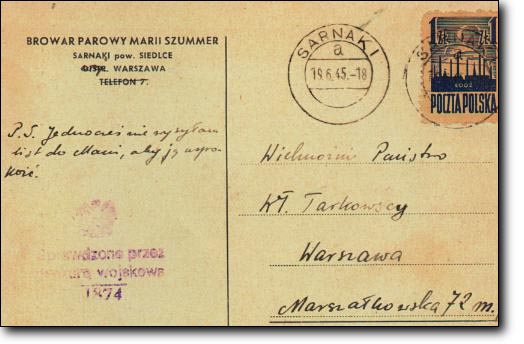 BROWAR PAROWY MARII SZUMMER
SARNAKI pow. SIEDLCE
WARSZAWA
TELEFON 7.
P.S. Jednocześnie wysyłam
list do Mani, aby ją uspo-
koić.
Sprawdzone przez
cenzurę wojskową
1874
SARNAKI
a
19.6.45.-18
1 ZŁ 1 ZŁ
ŁÓDŹ
POCZTA POLSKA
Wielmożni Państwo
Wł. Tarkowscy
Warszawa
Marszałkowska 72 m.